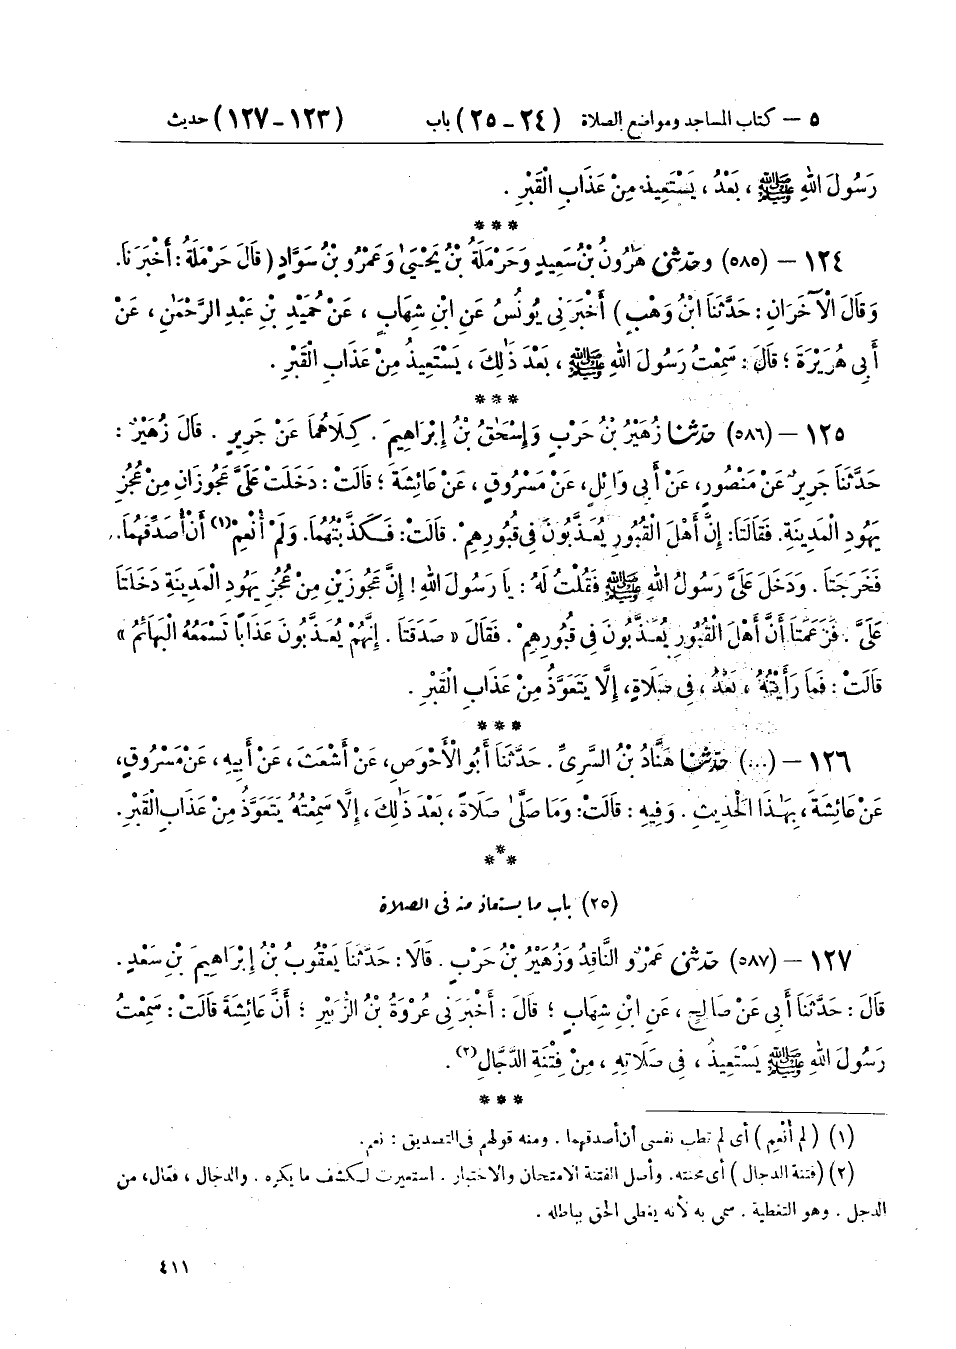 ٥ – كتاب المساجد ومواضع الصلاة (٢٤ – ٢٥) باب (١٢٣ – ١٢٧) حديث
رَسُولَ اللهِ ﷺ ، بَعْدُ ، يَسْتَعِيذُ مِنْ عَذَابِ الْقَبْرِ .
* * *
١٢٤ – (٥٨٥) وحَدَّثَنِي هَٰرُونُ بْنُ سَعِيدٍ وَحَرْمَلَةُ بْنُ يَحْيَىٰ وَعَمْرُو بْنُ سَوَّادٍ ( قَالَ حَرْمَلَةُ : أَخْبَرَنَا.
وَقَالَ الْآخَرَانِ : حَدَّثَنَا ابْنُ وَهْبٍ ) أَخْبَرَنِي يُونُسُ عَنِ ابْنِ شِهَابٍ ، عَنْ حُمَيْدِ بْنِ عَبْدِ الرَّحْمَٰنِ ، عَنْ
أَبِي هُرَيْرَةَ ؛ قَالَ : سَمِعْتُ رَسُولَ اللهِ ﷺ ، بَعْدَ ذَٰلِكَ ، يَسْتَعِيذُ مِنْ عَذَابِ الْقَبْرِ .
* * *
١٢٥ – (٥٨٦) حَدَّثَنَا زُهَيْرُ بْنُ حَرْبٍ وَإِسْحَٰقُ بْنُ إِبْرَاهِيمَ . كِلَاهُمَا عَنْ جَرِيرٍ . قَالَ زُهَيْرٌ :
حَدَّثَنَا جَرِيرٌ عَنْ مَنْصُورٍ، عَنْ أَبِي وَائِلٍ، عَنْ مَسْرُوقٍ ، عَنْ عَائِشَةَ ؛ قَالَتْ : دَخَلَتْ عَلَيَّ عَجُوزَانِ مِنْ عُجُزِ
يَهُودِ الْمَدِينَةِ. فَقَالَتَا: إِنَّ أَهْلَ الْقُبُورِ يُعَذَّبُونَ فِي قُبُورِهِمْ . قَالَتْ: فَكَذَّبْتُهُمَا. وَلَمْ أُنْعِمْ(١) أَنْ أُصَدِّقَهُمَا.
فَخَرَجَتَا . وَدَخَلَ عَلَيَّ رَسُولُ اللهِ ﷺ فَقُلْتُ لَهُ : يَا رَسُولَ اللهِ ! إِنَّ عَجُوزَيْنِ مِنْ عُجُزِ يَهُودِ الْمَدِينَةِ دَخَلَتَا
عَلَيَّ . فَزَعَمَتَا أَنَّ أَهْلَ الْقُبُورِ يُعَذَّبُونَ فِي قُبُورِهِمْ . فَقَالَ « صَدَقَتَا . إِنَّهُمْ يُعَذَّبُونَ عَذَابًا تَسْمَعُهُ الْبَهَائِمُ »
قَالَتْ : فَمَا رَأَيْتُهُ ، بَعْدُ ، فِي صَلَاةٍ، إِلَّا يَتَعَوَّذُ مِنْ عَذَابِ الْقَبْرِ .
* * *
١٢٦ – (...) حَدَّثَنَا هَنَّادُ بْنُ السَّرِيِّ . حَدَّثَنَا أَبُو الْأَحْوَصِ، عَنْ أَشْعَثَ ، عَنْ أَبِيهِ ، عَنْ مَسْرُوقٍ،
عَنْ عَائِشَةَ ، بِهَٰذَا الْحَدِيثِ . وَفِيهِ : قَالَتْ: وَمَا صَلَّىٰ صَلَاةً ، بَعْدَ ذَٰلِكَ ، إِلَّا سَمِعْتُهُ يَتَعَوَّذُ مِنْ عَذَابِ الْقَبْرِ.
* * *
(٢٥) باب ما يستعاذ منه في الصلاة
١٢٧ – (٥٨٧) حَدَّثَنِي عَمْرٌو النَّاقِدُ وَزُهَيْرُ بْنُ حَرْبٍ . قَالَا : حَدَّثَنَا يَعْقُوبُ بْنُ إِبْرَاهِيمَ بْنِ سَعْدٍ .
قَالَ : حَدَّثَنَا أَبِي عَنْ صَالِحٍ ، عَنِ ابْنِ شِهَابٍ ؛ قَالَ : أَخْبَرَنِي عُرْوَةُ بْنُ الزُّبَيْرِ ؛ أَنَّ عَائِشَةَ قَالَتْ : سَمِعْتُ
رَسُولَ اللهِ ﷺ يَسْتَعِيذُ ، فِي صَلَاتِهِ ، مِنْ فِتْنَةِ الدَّجَّالِ(٢) .
* * *
(١) (لم أُنْعِم) أي لم تطب نفسي أن أصدقهما . ومنه قولهم في التصديق : نعم.
(٢) (فتنة الدجال) أي محنته. وأصل الفتنة الامتحان والاختبار . استعيرت لكشف ما يكره . والدجال ، فعّال، من
الدجل . وهو التغطية . سمي به لأنه يغطي الحق بباطله .
٤١١